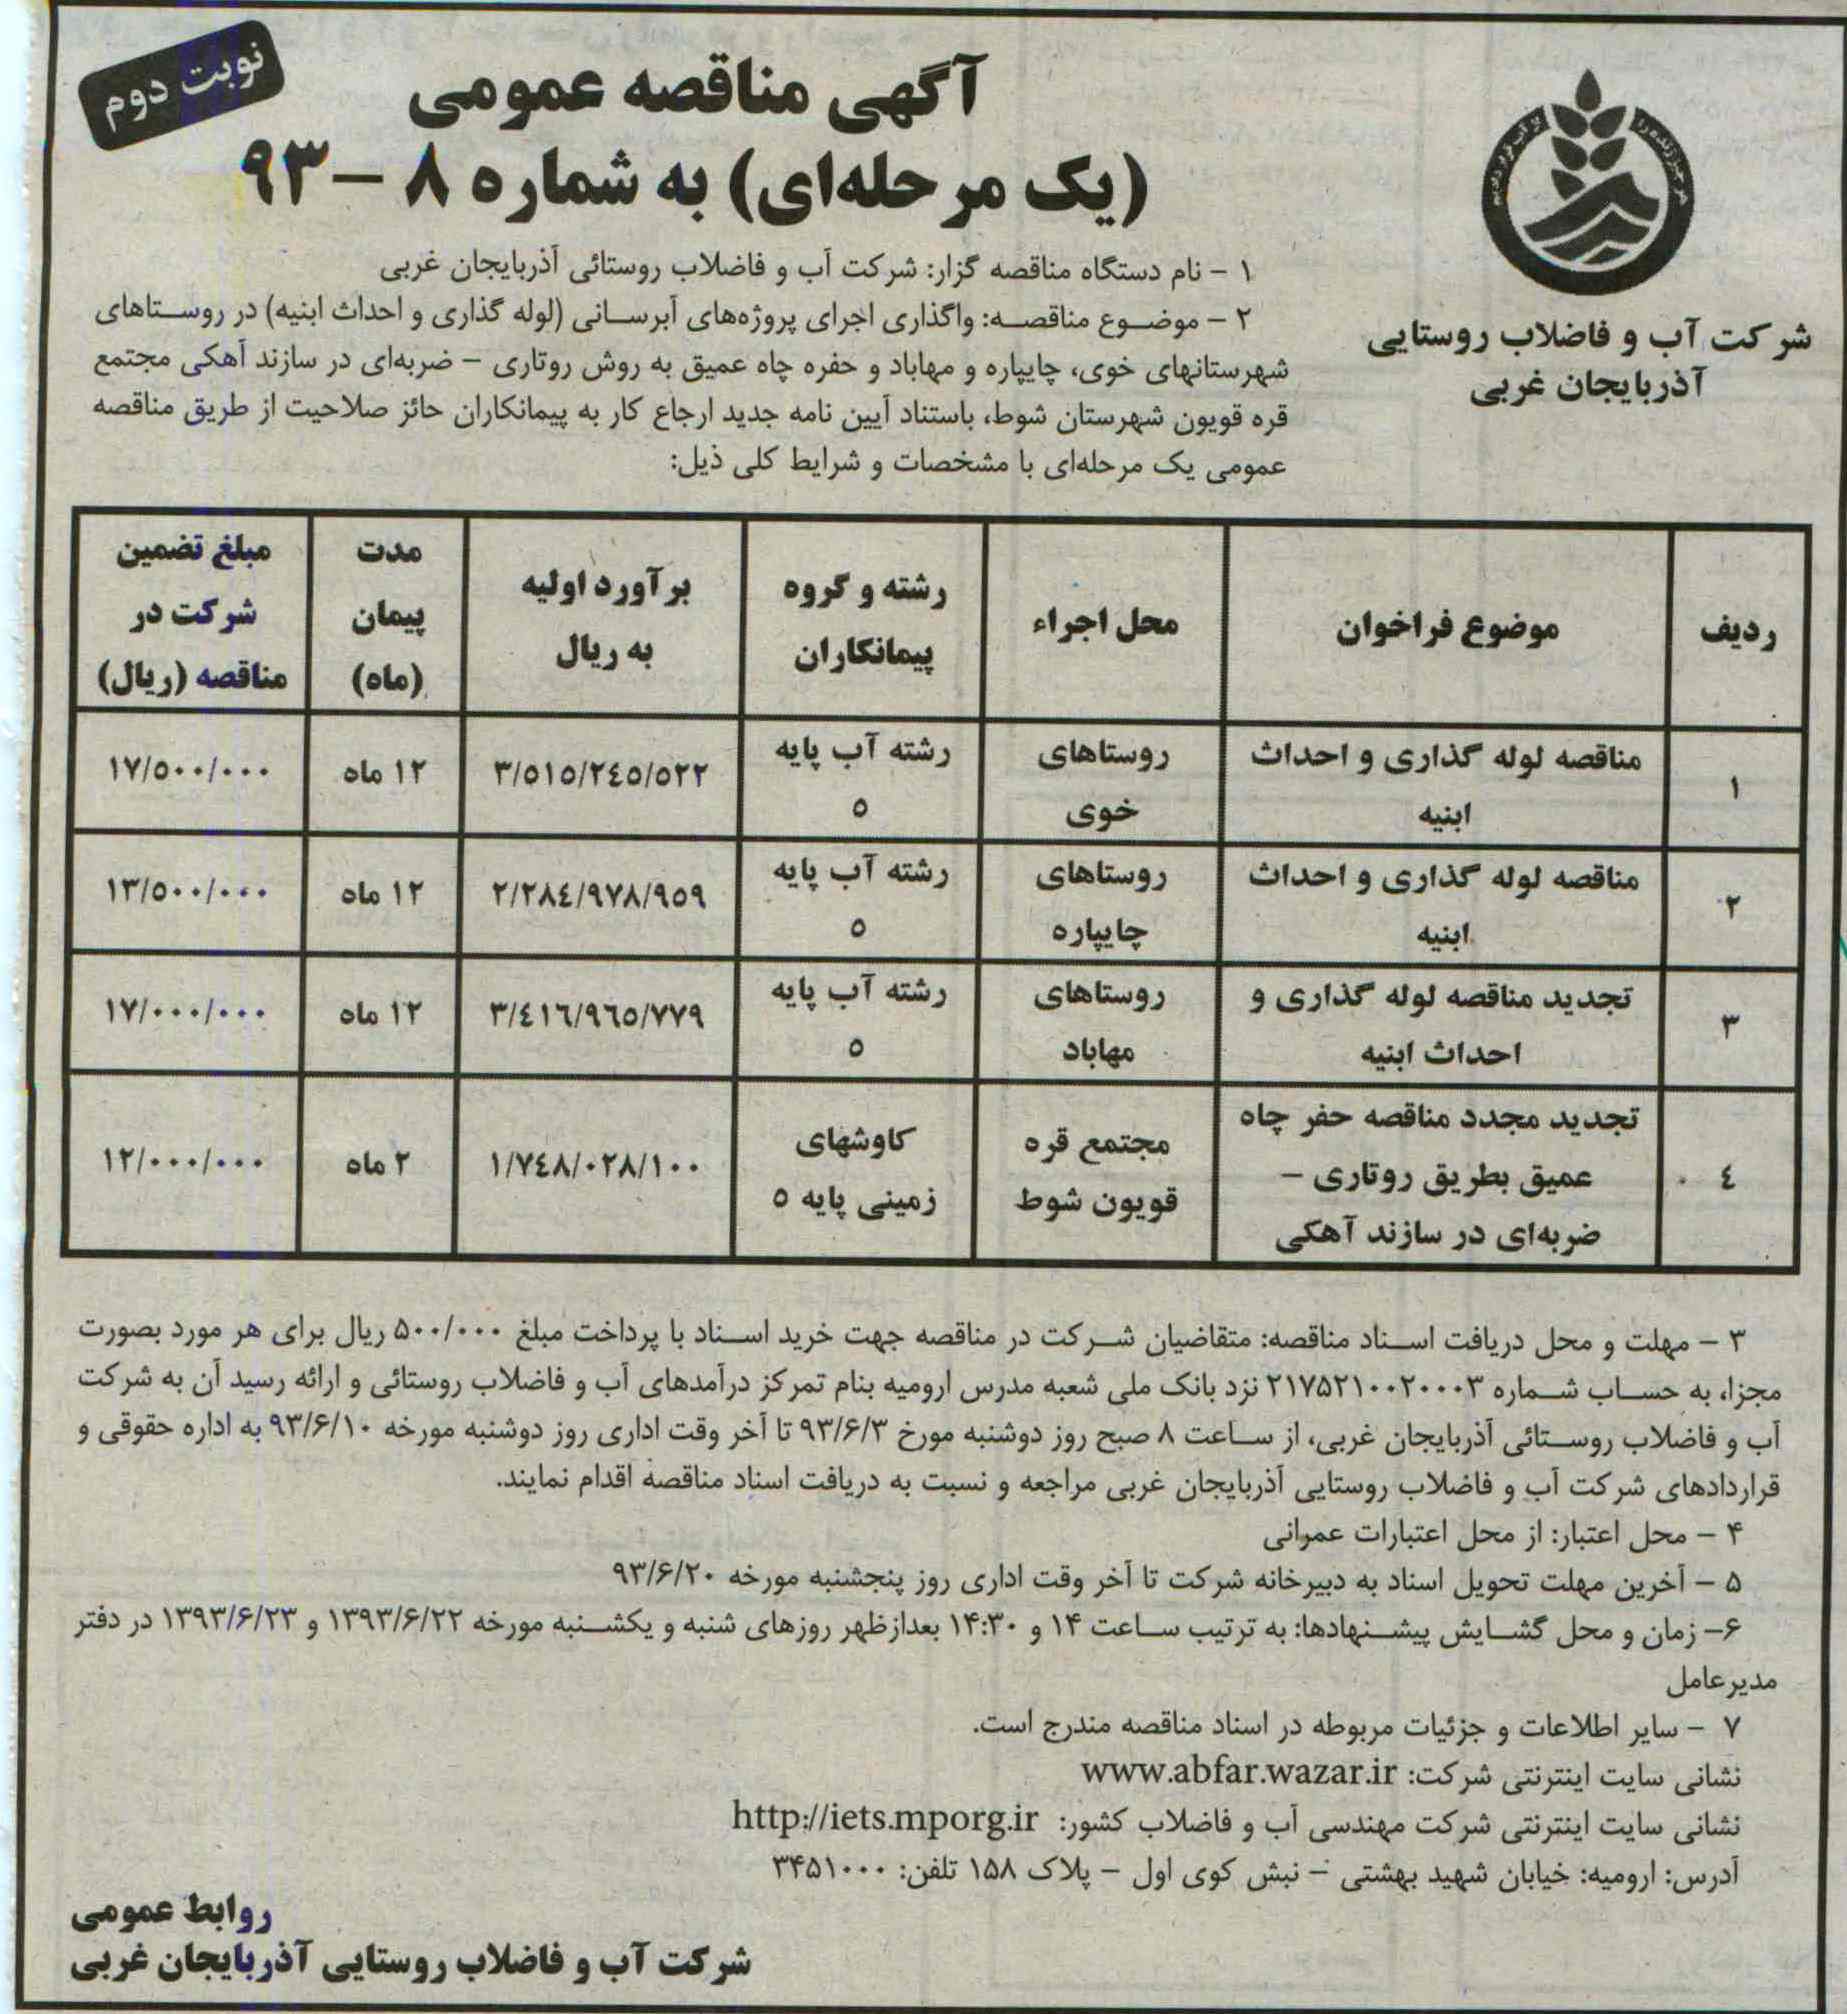 نوبت دوم
آگهی مناقصه عمومی
(یک مرحله‌ای) به شماره ۸ – ۹۳
شرکت آب و فاضلاب روستایی
آذربایجان غربی
۱ – نام دستگاه مناقصه گزار: شرکت آب و فاضلاب روستائی آذربایجان غربی
۲ – موضوع مناقصه: واگذاری اجرای پروژه‌های آبرسانی (لوله گذاری و احداث ابنیه) در روستاهای
شهرستانهای خوی، چایپاره و مهاباد و حفره چاه عمیق به روش روتاری – ضربه‌ای در سازند آهکی مجتمع
قره قویون شهرستان شوط، باستناد آیین نامه جدید ارجاع کار به پیمانکاران حائز صلاحیت از طریق مناقصه
عمومی یک مرحله‌ای با مشخصات و شرایط کلی ذیل:
ردیف
موضوع فراخوان
محل اجراء
رشته و گروه
پیمانکاران
برآورد اولیه
به ریال
مدت
پیمان
(ماه)
مبلغ تضمین
شرکت در
مناقصه (ریال)
۱
مناقصه لوله گذاری و احداث
ابنیه
روستاهای
خوی
رشته آب پایه
۵
۳/۵۱۵/۲٤۵/۵۲۲
۱۲ ماه
۱۷/۵۰۰/۰۰۰
۲
مناقصه لوله گذاری و احداث
ابنیه
روستاهای
چایپاره
رشته آب پایه
۵
۲/۲۸٤/۹۷۸/۹۵۹
۱۲ ماه
۱۳/۵۰۰/۰۰۰
۳
تجدید مناقصه لوله گذاری و
احداث ابنیه
روستاهای
مهاباد
رشته آب پایه
۵
۳/٤۱٦/۹٦۵/۷۷۹
۱۲ ماه
۱۷/۰۰۰/۰۰۰
٤
تجدید مجدد مناقصه حفر چاه
عمیق بطریق روتاری –
ضربه‌ای در سازند آهکی
مجتمع قره
قویون شوط
کاوشهای
زمینی پایه ۵
۱/۷٤۸/۰۲۸/۱۰۰
۲ ماه
۱۲/۰۰۰/۰۰۰
۳ – مهلت و محل دریافت اسناد مناقصه: متقاضیان شرکت در مناقصه جهت خرید اسناد با پرداخت مبلغ ۵۰۰/۰۰۰ ریال برای هر مورد بصورت
مجزا، به حساب شماره ۲۱۷۵۲۱۰۰۲۰۰۰۳ نزد بانک ملی شعبه مدرس ارومیه بنام تمرکز درآمدهای آب و فاضلاب روستائی و ارائه رسید آن به شرکت
آب و فاضلاب روستائی آذربایجان غربی، از ساعت ۸ صبح روز دوشنبه مورخ ۹۳/۶/۳ تا آخر وقت اداری روز دوشنبه مورخه ۹۳/۶/۱۰ به اداره حقوقی و
قراردادهای شرکت آب و فاضلاب روستایی آذربایجان غربی مراجعه و نسبت به دریافت اسناد مناقصه اقدام نمایند.
۴ – محل اعتبار: از محل اعتبارات عمرانی
۵ – آخرین مهلت تحویل اسناد به دبیرخانه شرکت تا آخر وقت اداری روز پنجشنبه مورخه ۹۳/۶/۲۰
۶– زمان و محل گشایش پیشنهادها: به ترتیب ساعت ۱۴ و ۱۴:۳۰ بعدازظهر روزهای شنبه و یکشنبه مورخه ۱۳۹۳/۶/۲۲ و ۱۳۹۳/۶/۲۳ در دفتر
مدیرعامل
۷ – سایر اطلاعات و جزئیات مربوطه در اسناد مناقصه مندرج است.
نشانی سایت اینترنتی شرکت: www.abfar.wazar.ir
نشانی سایت اینترنتی شرکت مهندسی آب و فاضلاب کشور: http://iets.mporg.ir
آدرس: ارومیه: خیابان شهید بهشتی – نبش کوی اول – پلاک ۱۵۸ تلفن: ۳۴۵۱۰۰۰
روابط عمومی
شرکت آب و فاضلاب روستایی آذربایجان غربی